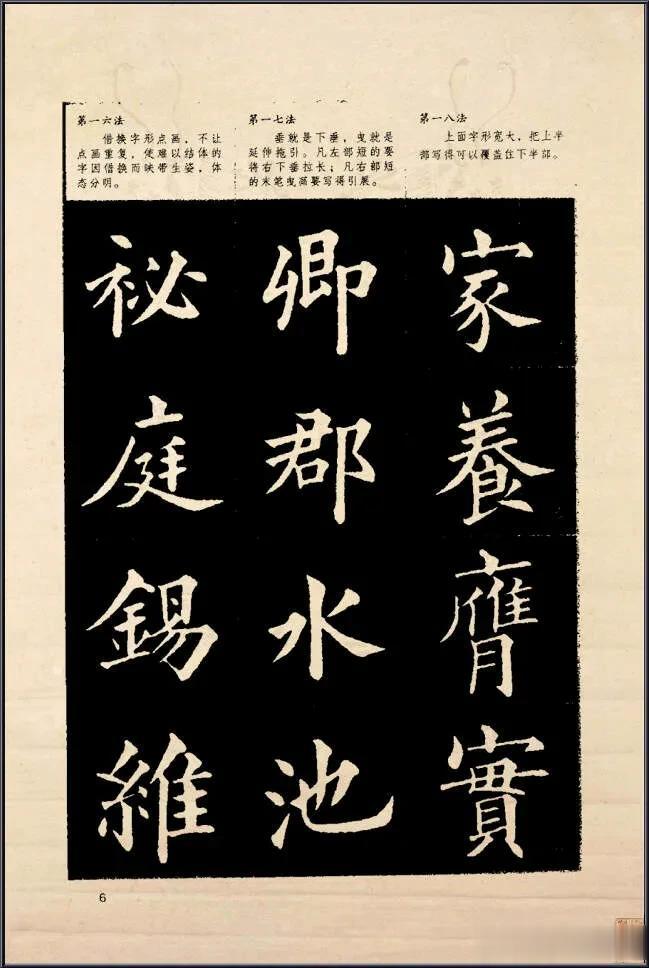 第一六法
借换字形点画，不让
点画重复，使难以结体的
字因借换而映带生姿，体
态分明。
第一七法
垂就是下垂，曳就是
延伸拖引。凡左部短的要
将右下垂拉长；凡右部短
的末笔曳画要写得引展。
第一八法
上面字形宽大，把上半
部写得可以覆盖住下半部。
祕 卿 家
庭 郡 養
錫 水 膺
維 池 實
6